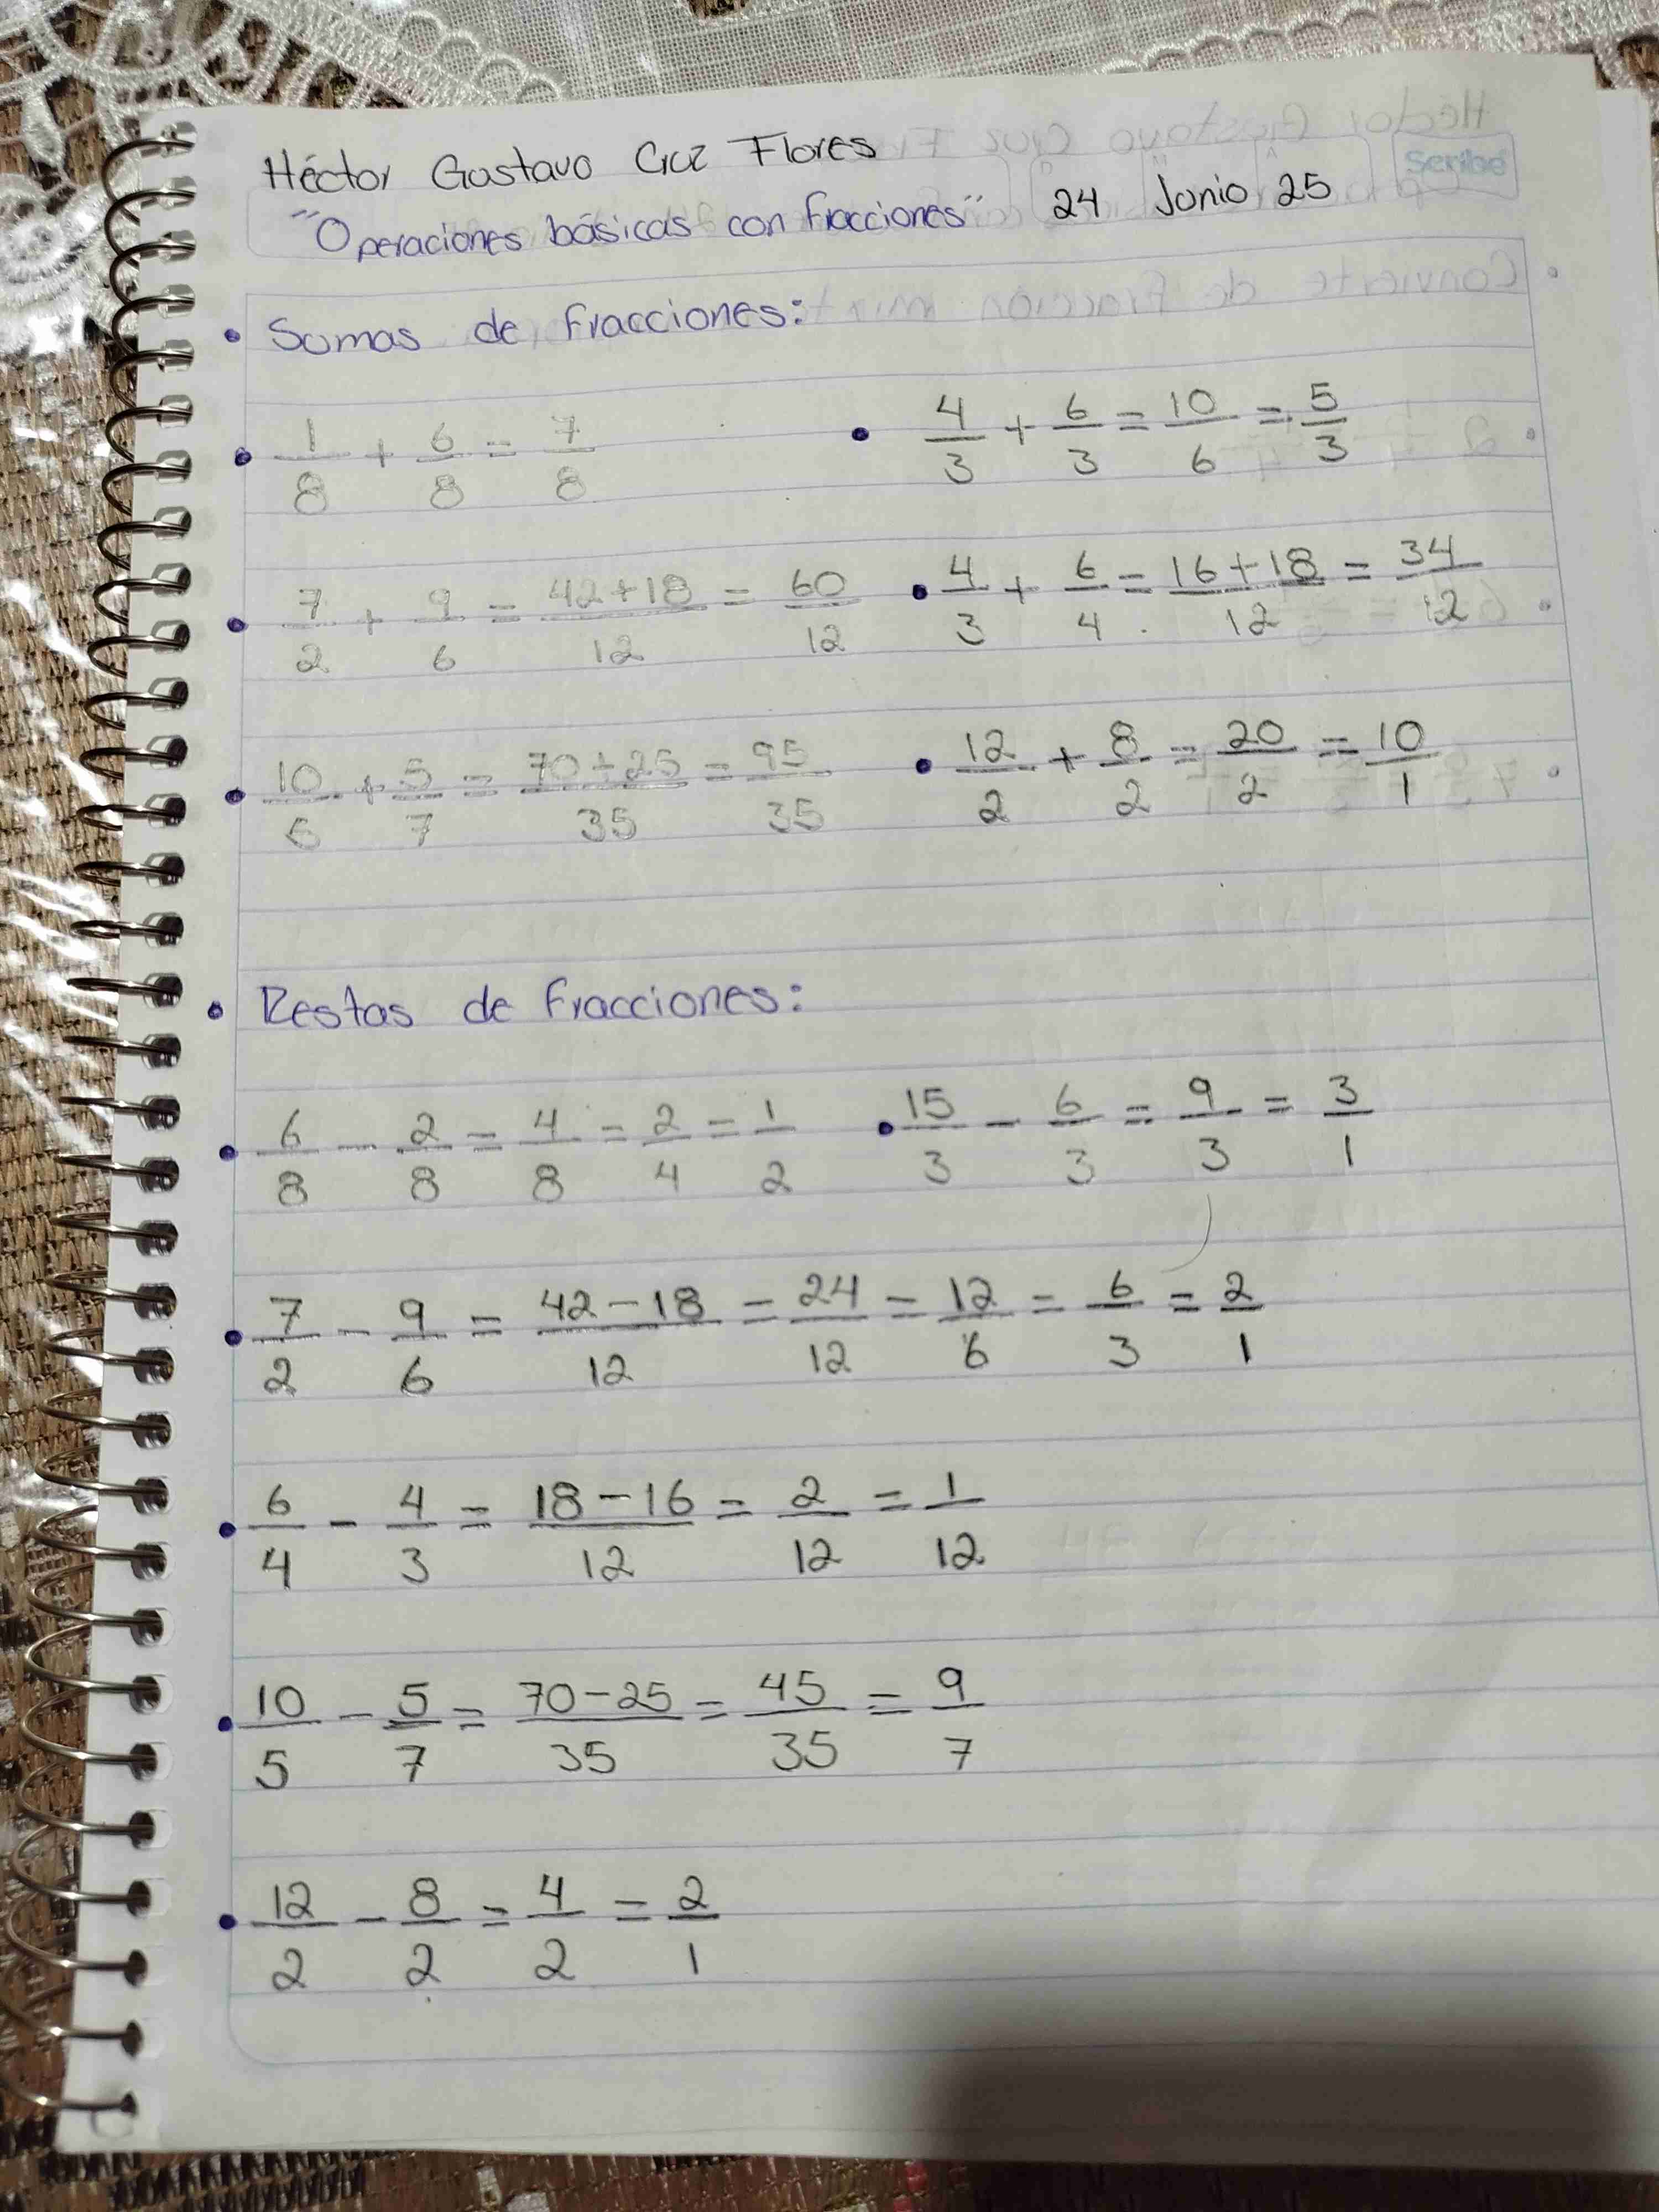 Héctor Gustavo Cruz Flores
"Operaciones básicas con fracciones" 24 Junio 25
Scribe
• Sumas de fracciones:
• 1/8 + 6/8 = 7/8
• 4/3 + 6/3 = 10/6 = 5/3
• 7/2 + 9/6 = 42+18/12 = 60/12
• 4/3 + 6/4 = 16+18/12 = 34/12
• 10/5 + 5/7 = 70+25/35 = 95/35
• 12/2 + 8/2 = 20/2 = 10/1
• Restas de fracciones:
• 6/8 - 2/8 = 4/8 = 2/4 = 1/2
• 15/3 - 6/3 = 9/3 = 3/1
• 7/2 - 9/6 = 42-18/12 = 24/12 = 12/6 = 6/3 = 2/1
• 6/4 - 4/3 = 18-16/12 = 2/12 = 1/12
• 10/5 - 5/7 = 70-25/35 = 45/35 = 9/7
• 12/2 - 8/2 = 4/2 = 2/1